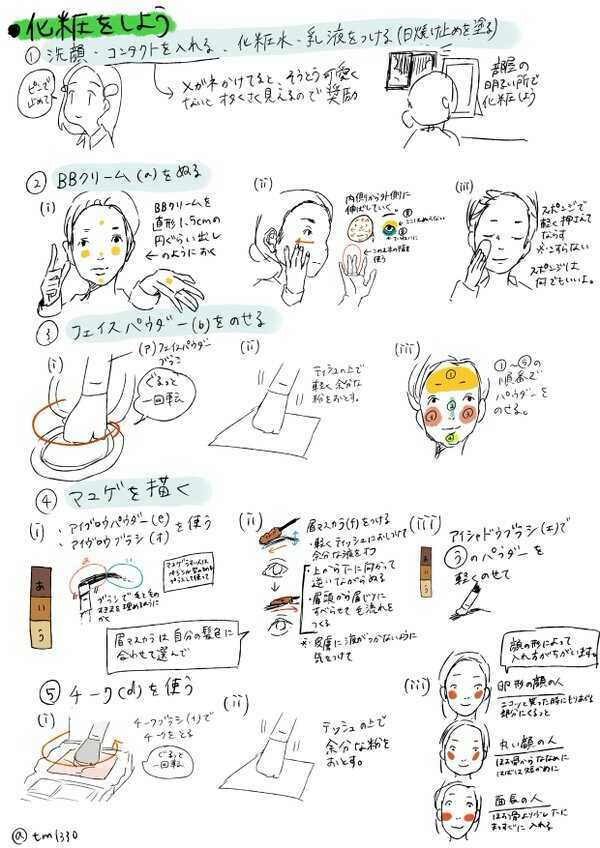 ●化粧をしよう
①洗顔・コンタクトを入れる、化粧水・乳液をつける(日焼け止めを塗る)
ピンで
止めて
→メガネかけてると、そうとう可愛く
ないとオタクさく見えるので奨励
部屋の
明るい所で
化粧しよう
②BBクリーム(a)をぬる
(i)
BBクリームを
直径1.5cmの
円ぐらい出し
←のようにおく
(ii)
内側から外側に
伸ばしていく
使う
(iii)
スポンジで
軽く押さえて
ならす
※こすらない
スポンジは
何でもいいよ。
③フェイスパウダー(b)をのせる
(i)
(ア)フェイスパウダー
ブラシ
ぐるっと
一回転
(ii)
ティッシュの上で
軽く余分な
粉をおとす。
(iii)
①〜⑤の
順番で
パウダーを
のせる。
④マユゲを描く
(i)
・アイブロウパウダー(e)
・アイブロウブラシ(オ)
を使う
あ
い
う
ブラシで毛と毛の
スキマを埋めるように
かく
眉マスカラは自分の髪色に
合わせて選んで
(ii)
眉マスカラ(f)をつける
・軽くティッシュにおしつけて
余分な液をオフ
・上から下に向かって
逆いながらぬる
・眉頭から眉じりに
すべらせて毛流れを
つくる
※皮膚に液がつかないように
気をつけて
(iii)
アイシャドウブラシ(エ)で
うのパウダーを
軽くのせて
あ
い
う
⑤チーク(d)を使う
(i)
チークブラシ(イ)で
チークをとる
ぐるっと
一回転
(ii)
ティッシュの上で
余分な粉を
おとす。
(iii)
顔の形によって
入れ方がちがいます。
卵形の顔の人
ニコッと笑った時にもりあがる
部分にくるっと
丸い顔の人
ほお骨からななめに
はばは短かめに
面長の人
ほお骨より少し下に
まっすぐに入れる
@tm1330